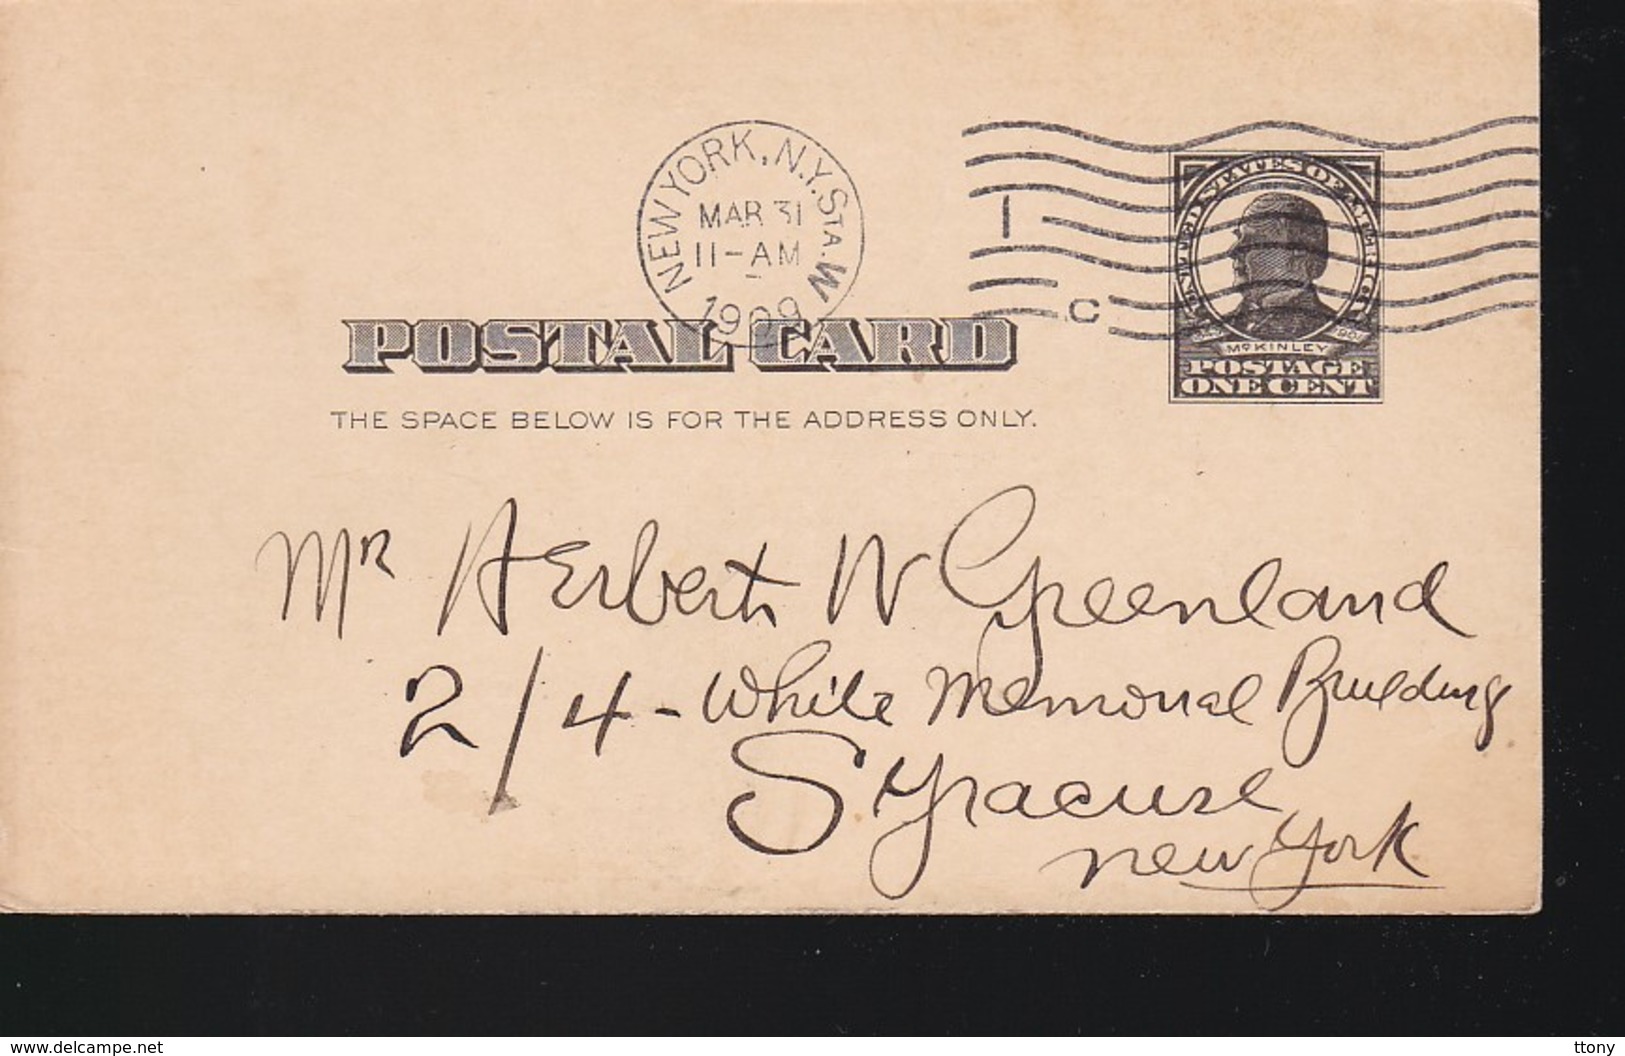 NEW YORK, N.Y. STA. W
MAR 31
11-AM
1909
1
C
UNITED STATES OF AMERICA
McKINLEY
POSTAGE
ONE CENT
POSTAL CARD
THE SPACE BELOW IS FOR THE ADDRESS ONLY.
Mr Herbert W Greenland
214 - White Memorial Building
Syracuse
New York
www.delcampe.net
ttony